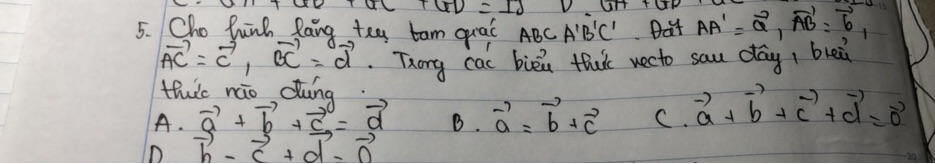 C. GA + GB + GC + GD = IJ D. GA + GB
5. Cho hình lăng trụ tam giác ABC A'B'C'. Đặt AA' = a, AB = b,
AC = c, BC = d. Trong các biểu thức vecto sau đây, biểu
thức nào đúng.
A. a + b + c = d B. a = b + c C. a + b + c + d = 0
D. b - c + d = 0